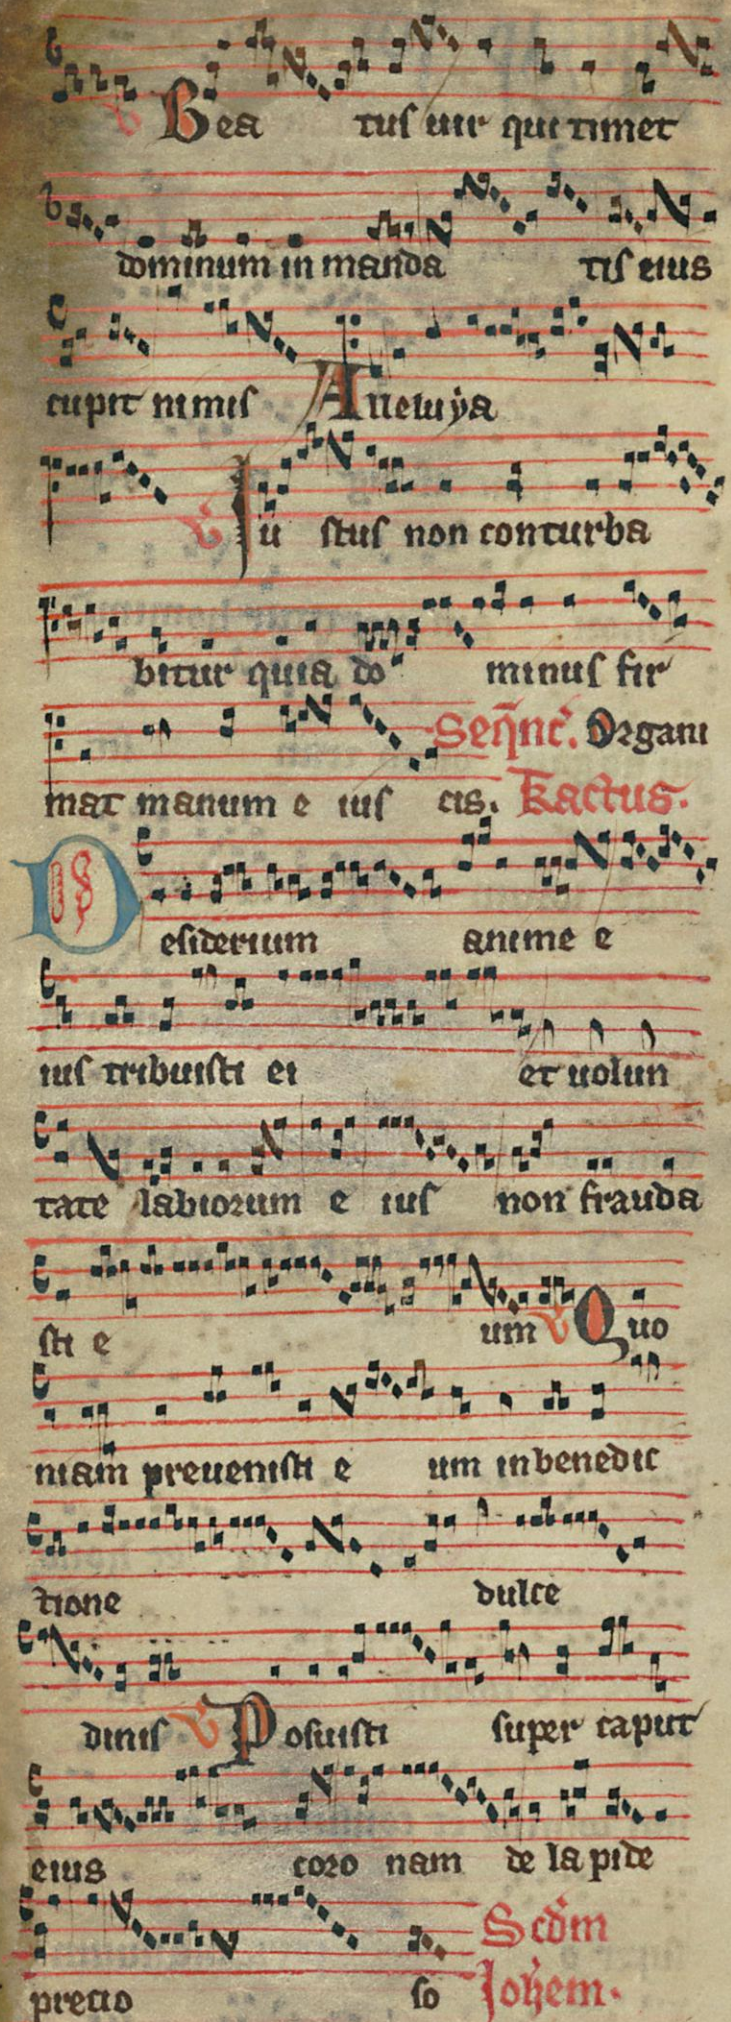 V Bea tus uir qui timet
dominum in manda tis eius
cupit nimis Alleluya
V Iu stus non conturba
bitur quia do minus fir
Seqnc. Organi
mat manum e ius cis. Tractus.
Desiderium anime e
ius tribuisti ei et uolun
tate labiorum e ius non frauda
sti e um V Quo
niam preuenisti e um in benedic
tione dulce
dinis V Posuisti super caput
eius coro nam de la pide
Scdm
precio so Iohem.